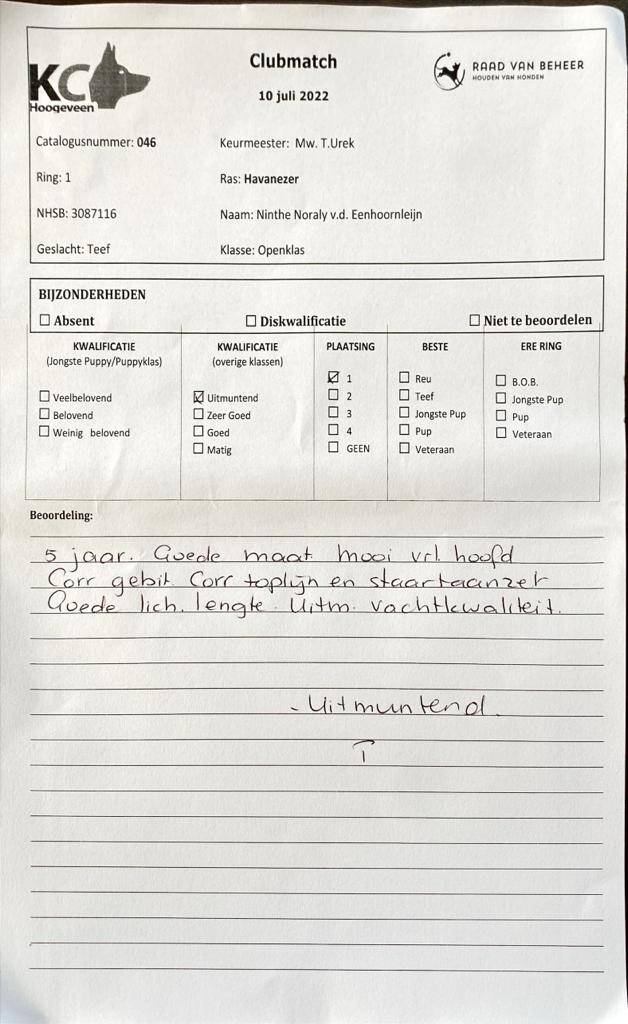 KC
Hoogeveen
Clubmatch
10 juli 2022
RAAD VAN BEHEER
HOUDEN VAN HONDEN
Catalogusnummer: 046
Keurmeester: Mw. T.Urek
Ring: 1
Ras: Havanezer
NHSB: 3087116
Naam: Ninthe Noraly v.d. Eenhoornleijn
Geslacht: Teef
Klasse: Openklas
BIJZONDERHEDEN
☐ Absent
☐ Diskwalificatie
☐ Niet te beoordelen
KWALIFICATIE
(Jongste Puppy/Puppyklas)
☐ Veelbelovend
☐ Belovend
☐ Weinig belovend
KWALIFICATIE
(overige klassen)
☑ Uitmuntend
☐ Zeer Goed
☐ Goed
☐ Matig
PLAATSING
☑ 1
☐ 2
☐ 3
☐ 4
☐ GEEN
BESTE
☐ Reu
☐ Teef
☐ Jongste Pup
☐ Pup
☐ Veteraan
ERE RING
☐ B.O.B.
☐ Jongste Pup
☐ Pup
☐ Veteraan
Beoordeling:
5 jaar. Goede maat mooi vrl. hoofd
Corr gebit Corr toplijn en staartaanzet
Goede lich. lengte. Uitm. vachtkwaliteit.
- Uitmuntend.
T